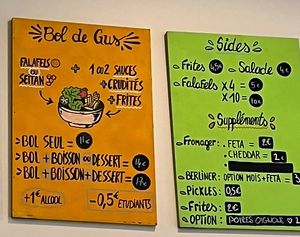 Bol de Gus
FALAFELS
ou
SEITAN
+ 1 ou 2 SAUCES
+ CRUDITÉS
+ FRITES
BOL SEUL = 11€
BOL + BOISSON ou DESSERT = 14€
BOL + BOISSON + DESSERT = 17€
+1€ ALCOOL
-0,5€ ÉTUDIANTS
Sides
Frites Salade 4€
Falafels x 4 = 5€
x 10 = 10€
Suppléments
Fromager: FETA = 2€
CHEDDAR = 2€
BERLINER: OPTION MOIS + FETA = 3
PICKLES: 0,5€
Frites: 2€
OPTION: